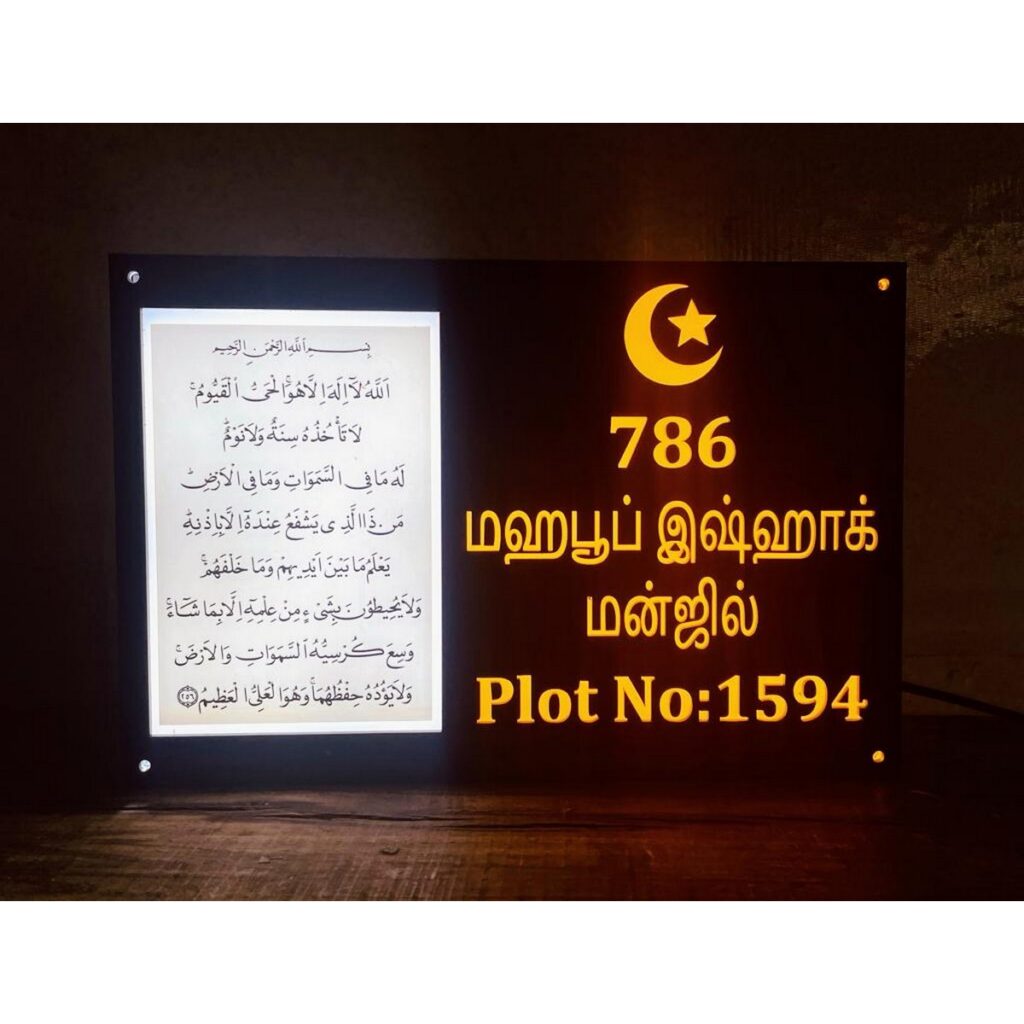 بِسْمِ اللَّهِ الرَّحْمَنِ الرَّحِيمِ
اَللّٰهُ لَآ اِلٰهَ اِلَّا هُوَۚ اَلْحَىُّ الْقَيُّومُۚ
لَا تَأْخُذُهُ سِنَةٌ وَلَا نَوْمٌۜ
لَهُ مَا فِى السَّمٰوَاتِ وَمَا فِى الْاَرْضِۜ
مَنْ ذَا الَّذِى يَشْفَعُ عِنْدَهُٓ اِلَّا بِاِذْنِهِۜ
يَعْلَمُ مَا بَيْنَ اَيْدِيهِمْ وَمَا خَلْفَهُمْۚ
وَلَا يُحِيطُونَ بِشَىْءٍ مِنْ عِلْمِهِٓ اِلَّا بِمَا شَٓاءَۚ
وَسِعَ كُرْسِيُّهُ السَّمٰوَاتِ وَالْاَرْضَۚ
وَلَا يَؤُدُهُ حِفْظُهُمَاۚ وَهُوَ الْعَلِىُّ الْعَظِيمُ ﴿٢٥٦﴾
786
மஹபூப் இஷ்ஹாக்
மன்ஜில்
Plot No:1594